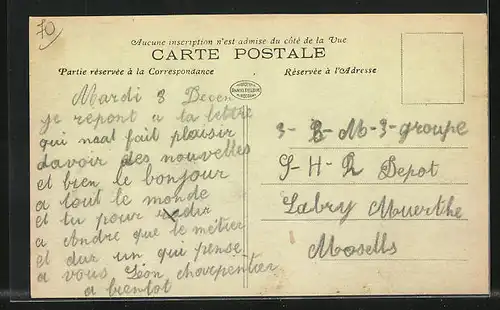 70
Aucune inscription n'est admise du côté de la Vue
CARTE POSTALE
Partie réservée à la Correspondance
Réservée à l'Adresse
Mardi 3 Decem
je repont a ta lettre
qui naat fait plaisir
davoir des nouvelles
et bien le bonjour
a tout le monde
et tu pour dir
a Andre que le métier
et dur un qui pense
a vous Léon charpentier
a bientot
3-B-M-3-groupe
S-H-R Depot
Labry Muerthe
Moselle